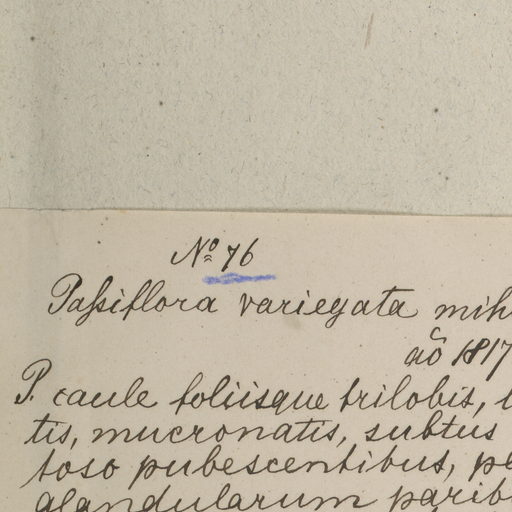 Nº 76
Passiflora variegata mih
aô 1817
P. caule foliisque trilobis,
tis, mucronatis, subtus
toso pubescentibus,
glandularum parib